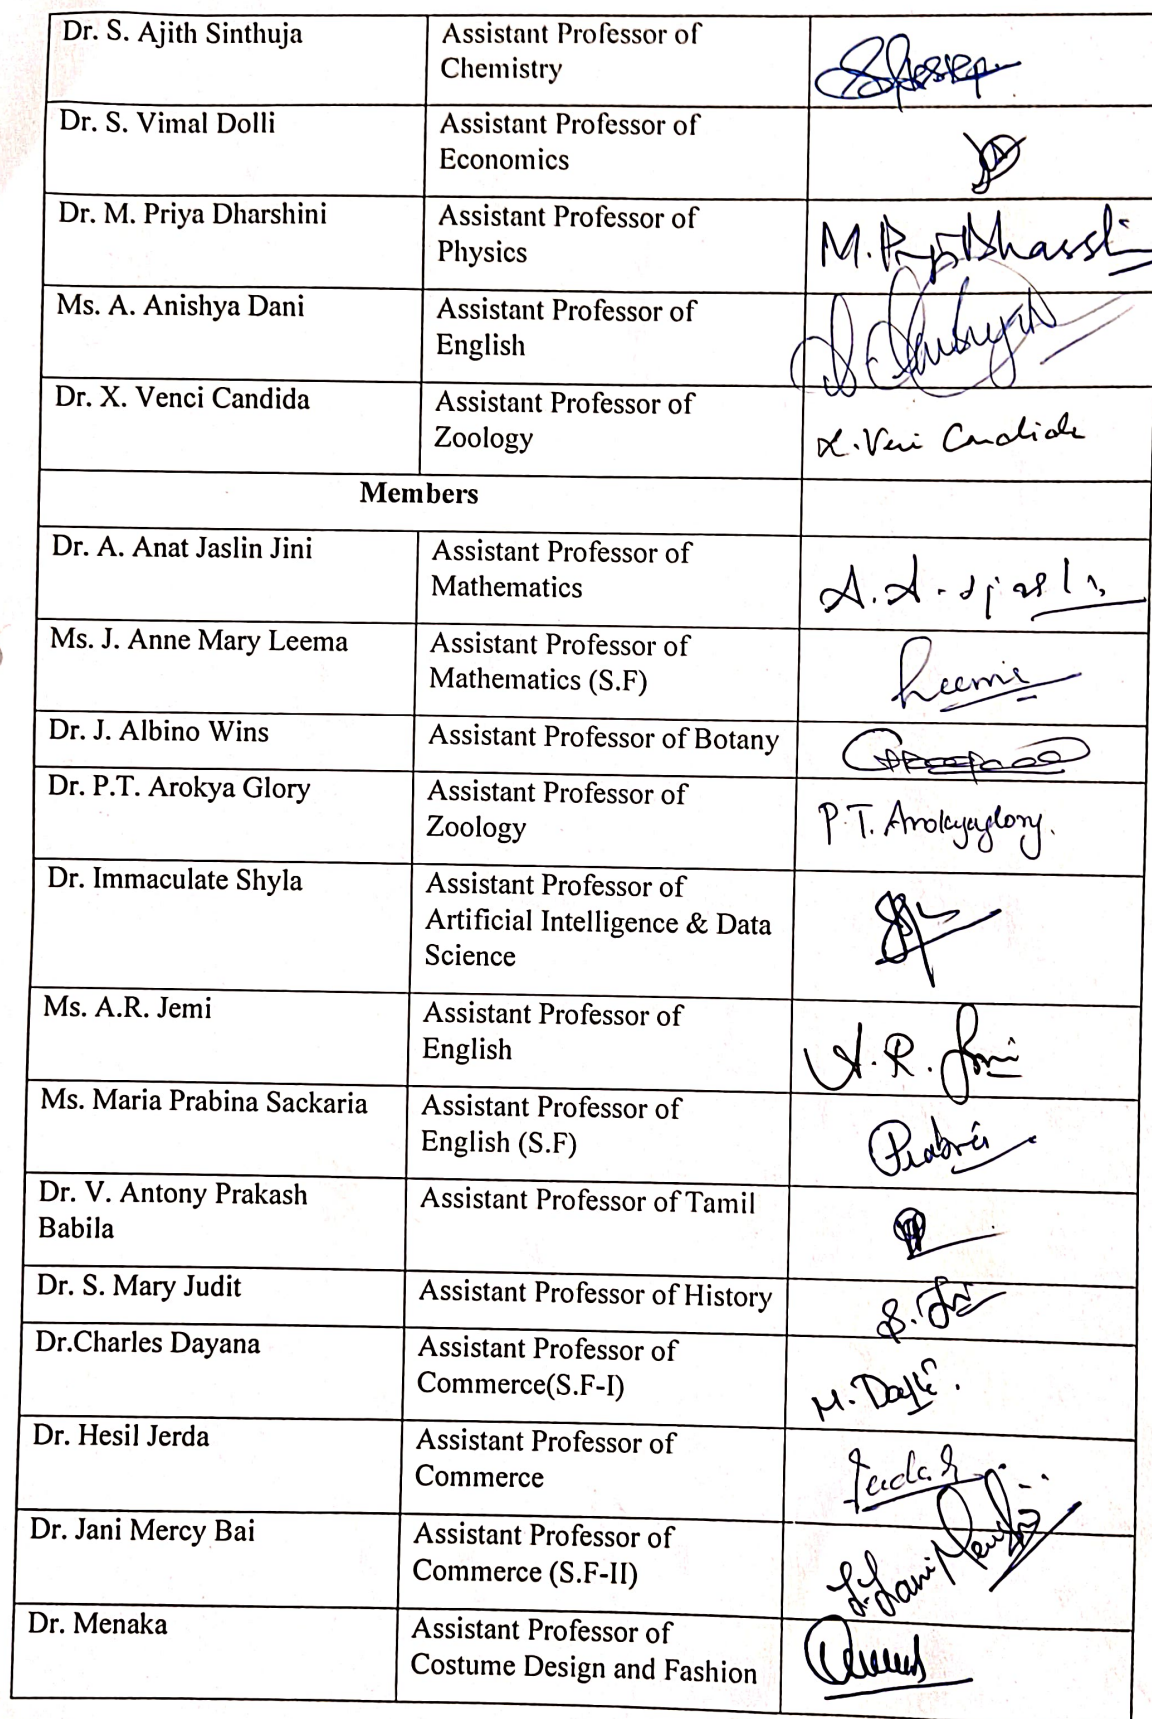 Dr. S. Ajith Sinthuja
Assistant Professor of
Chemistry
Dr. S. Vimal Dolli
Assistant Professor of
Economics
Dr. M. Priya Dharshini
Assistant Professor of
Physics
Ms. A. Anishya Dani
Assistant Professor of
English
Dr. X. Venci Candida
Assistant Professor of
Zoology
Members
Dr. A. Anat Jaslin Jini
Assistant Professor of
Mathematics
Ms. J. Anne Mary Leema
Assistant Professor of
Mathematics (S.F)
Dr. J. Albino Wins
Assistant Professor of Botany
Dr. P.T. Arokya Glory
Assistant Professor of
Zoology
P.T. Arokyaglory.
Dr. Immaculate Shyla
Assistant Professor of
Artificial Intelligence & Data
Science
Ms. A.R. Jemi
Assistant Professor of
English
A.R.
Ms. Maria Prabina Sackaria
Assistant Professor of
English (S.F)
Dr. V. Antony Prakash
Babila
Assistant Professor of Tamil
Dr. S. Mary Judit
Assistant Professor of History
Dr.Charles Dayana
Assistant Professor of
Commerce(S.F-I)
Dr. Hesil Jerda
Assistant Professor of
Commerce
Dr. Jani Mercy Bai
Assistant Professor of
Commerce (S.F-II)
Dr. Menaka
Assistant Professor of
Costume Design and Fashion